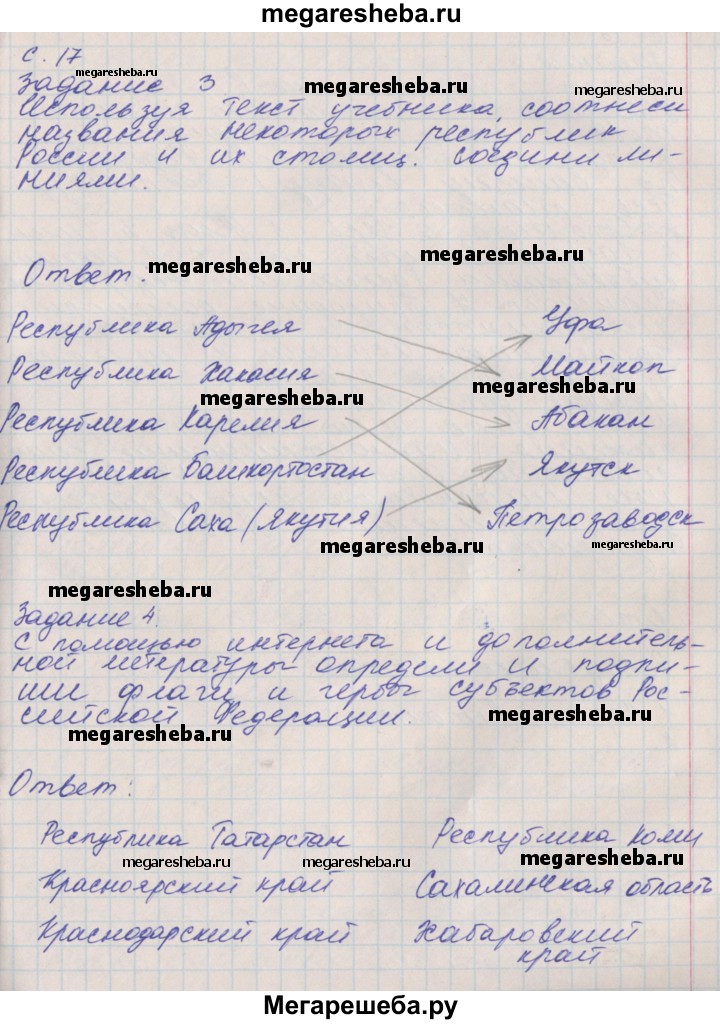 megaresheba.ru
с. 17
megaresheba.ru
Задание 3
megaresheba.ru
Используя текст учебника, соотнеси
megaresheba.ru
названия некоторых республик
России и их столиц. Соедини ли-
ниями.
megaresheba.ru
Ответ:
megaresheba.ru
Республика Адыгея Уфа
Республика Хакасия Майкоп
megaresheba.ru
megaresheba.ru
Республика Карелия Абакан
Республика Башкортостан Якутск
Республика Саха (Якутия) Петрозаводск
megaresheba.ru
megaresheba.ru
megaresheba.ru
Задание 4.
С помощью интернета и дополнитель-
ной литературы определи и подпи-
ши флаги и гербы субъектов Рос-
сийской Федерации.
megaresheba.ru
megaresheba.ru
Ответ:
Республика Татарстан Республика Коми
megaresheba.ru
megaresheba.ru
megaresheba.ru
Красноярский край Сахалинская область
Краснодарский край Хабаровский
край
Мегарешеба.ру